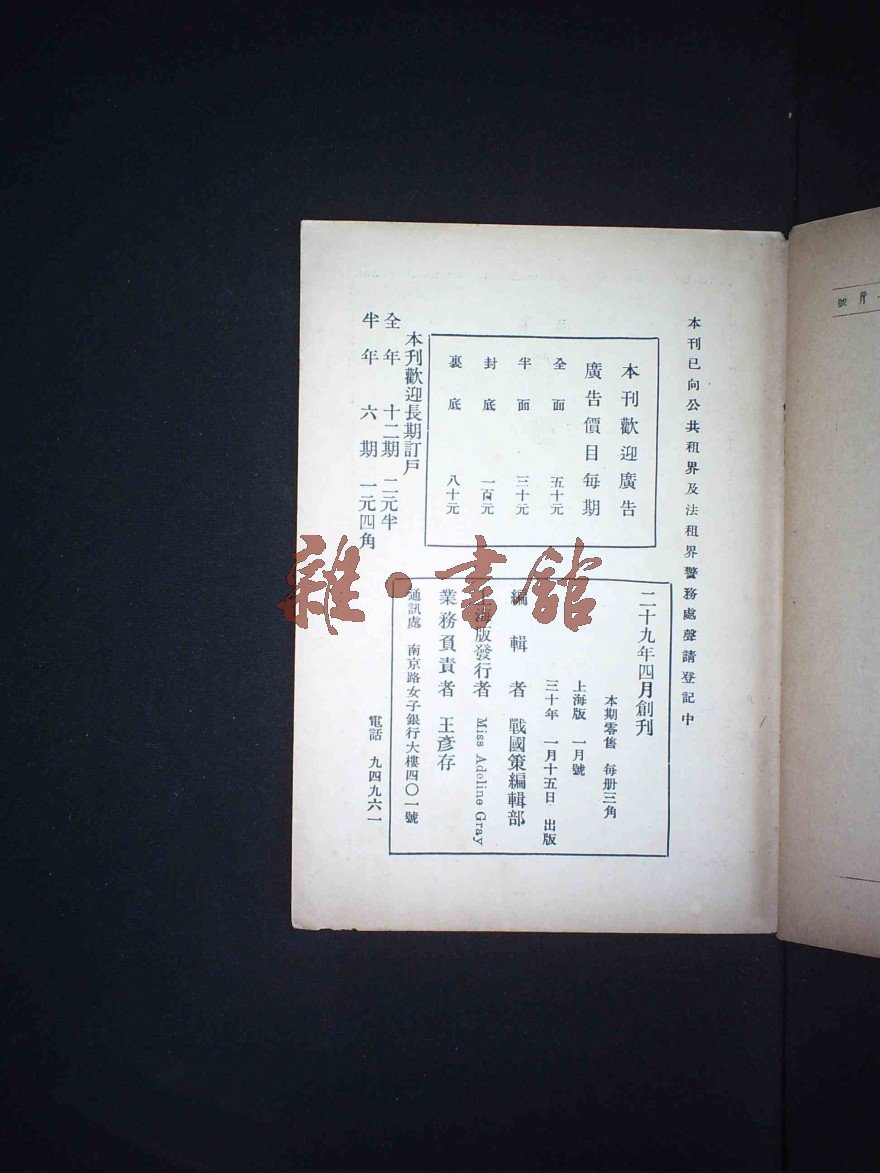 本刊已向公共租界及法租界警務處聲請登記中
本刊歡迎廣告
廣告價目每期
全面 五十元
半面 三十元
封底 一百元
裏底 八十元
本刊歡迎長期訂戶
全年 十二期 二元半
半年 六期 一元四角
二十九年四月創刊
本期零售 每册三角
上海版 一月號
三十年 一月十五日 出版
編輯者 戰國策編輯部
上海版發行者 Miss Adoline Gray
業務負責者 王彥存
通訊處 南京路女子銀行大樓四〇一號
電話 九四九六一
雜·書館
月號